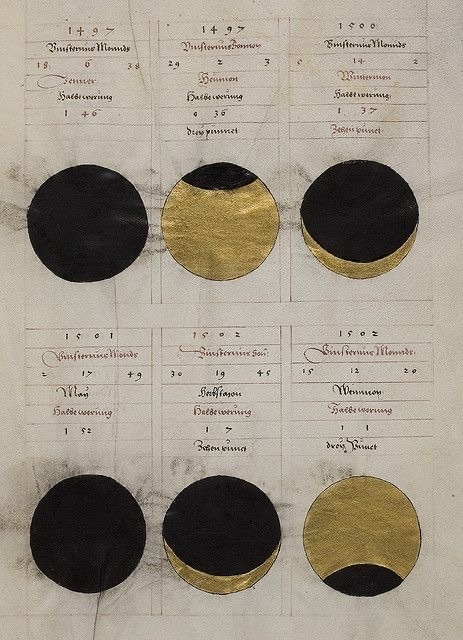 1497
Vinsternus Monnds
18 6 38
Jenner
Halbe werung
1 46
1497
Vinsternus Sonnen
29 2 3
Heumon
Halbe werung
0 36
drey punnct
1500
Vinsternus Monnds
14 2
Wintermon
Halbe werung
1 37
Zehen punct
1501
Vinsternus Monds
2 17 49
May
Halbe werung
1 52
1502
Vinsternus
30 19 45
Herbstmon
Halbe werung
1 7
Zehen punct
1502
Vinsternus Monnds
15 12 20
Halbe werung
1 1
drey Punct